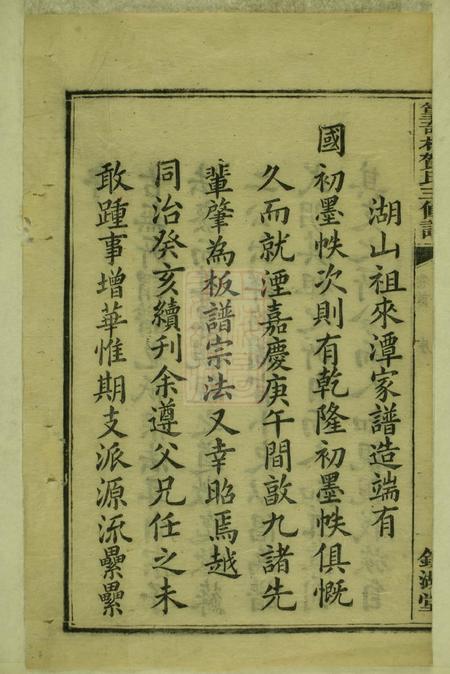 湖山祖來潭家譜造端有
國初墨帙次則有乾隆初墨帙俱慨
久而就湮嘉慶庚午間敳九諸先
輩肇為板譜宗法又幸昭焉越
同治癸亥續刊余遵父兄任之未
敢踵事增華惟期支派源流纍纍